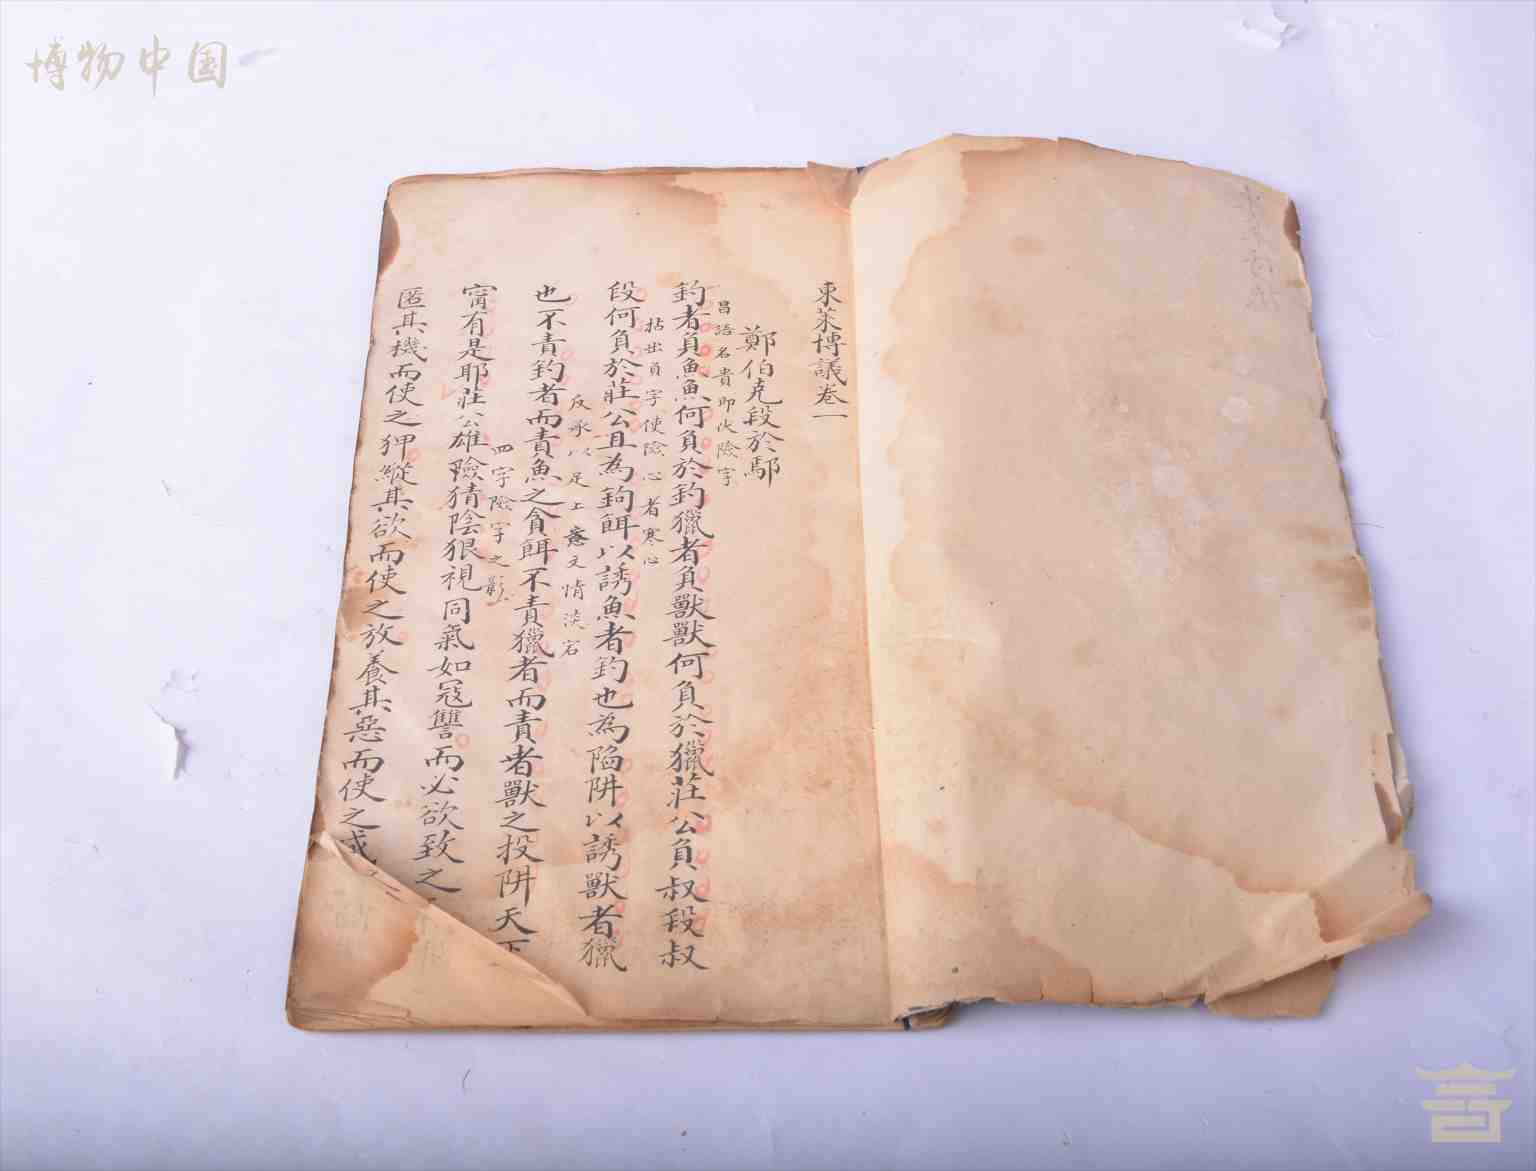 博物中国
東萊博議卷一
鄭伯克段於鄢
昌語名貴即伏險字
釣者負魚魚何負於釣獵者負獸獸何負於獵莊公負叔段叔
拈出負字使險心者寒心
段何負於莊公且為鉤餌以誘魚者釣也為陷阱以誘獸者獵
反承以足上意文情淡宕
也不責釣者而責魚之貪餌不責獵者而責者獸之投阱天下
四字險字之影
寗有是耶莊公雄險猜陰狠視同氣如寇讐而必欲致之
匿其機而使之狎縱其欲而使之放養其惡而使之成